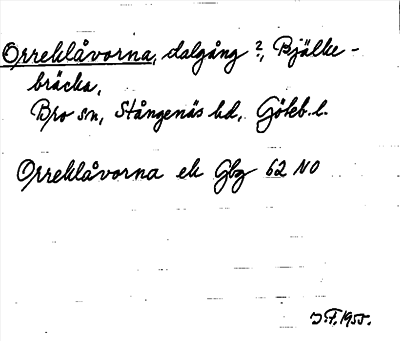 Orreklåvorna, dalgång ?, Bjälke-
bräcka,
Bro sn, Stångenäs hd, Göteb. l.
Orreklåvorna ek Gbg 62 NO
J.F. 1955.